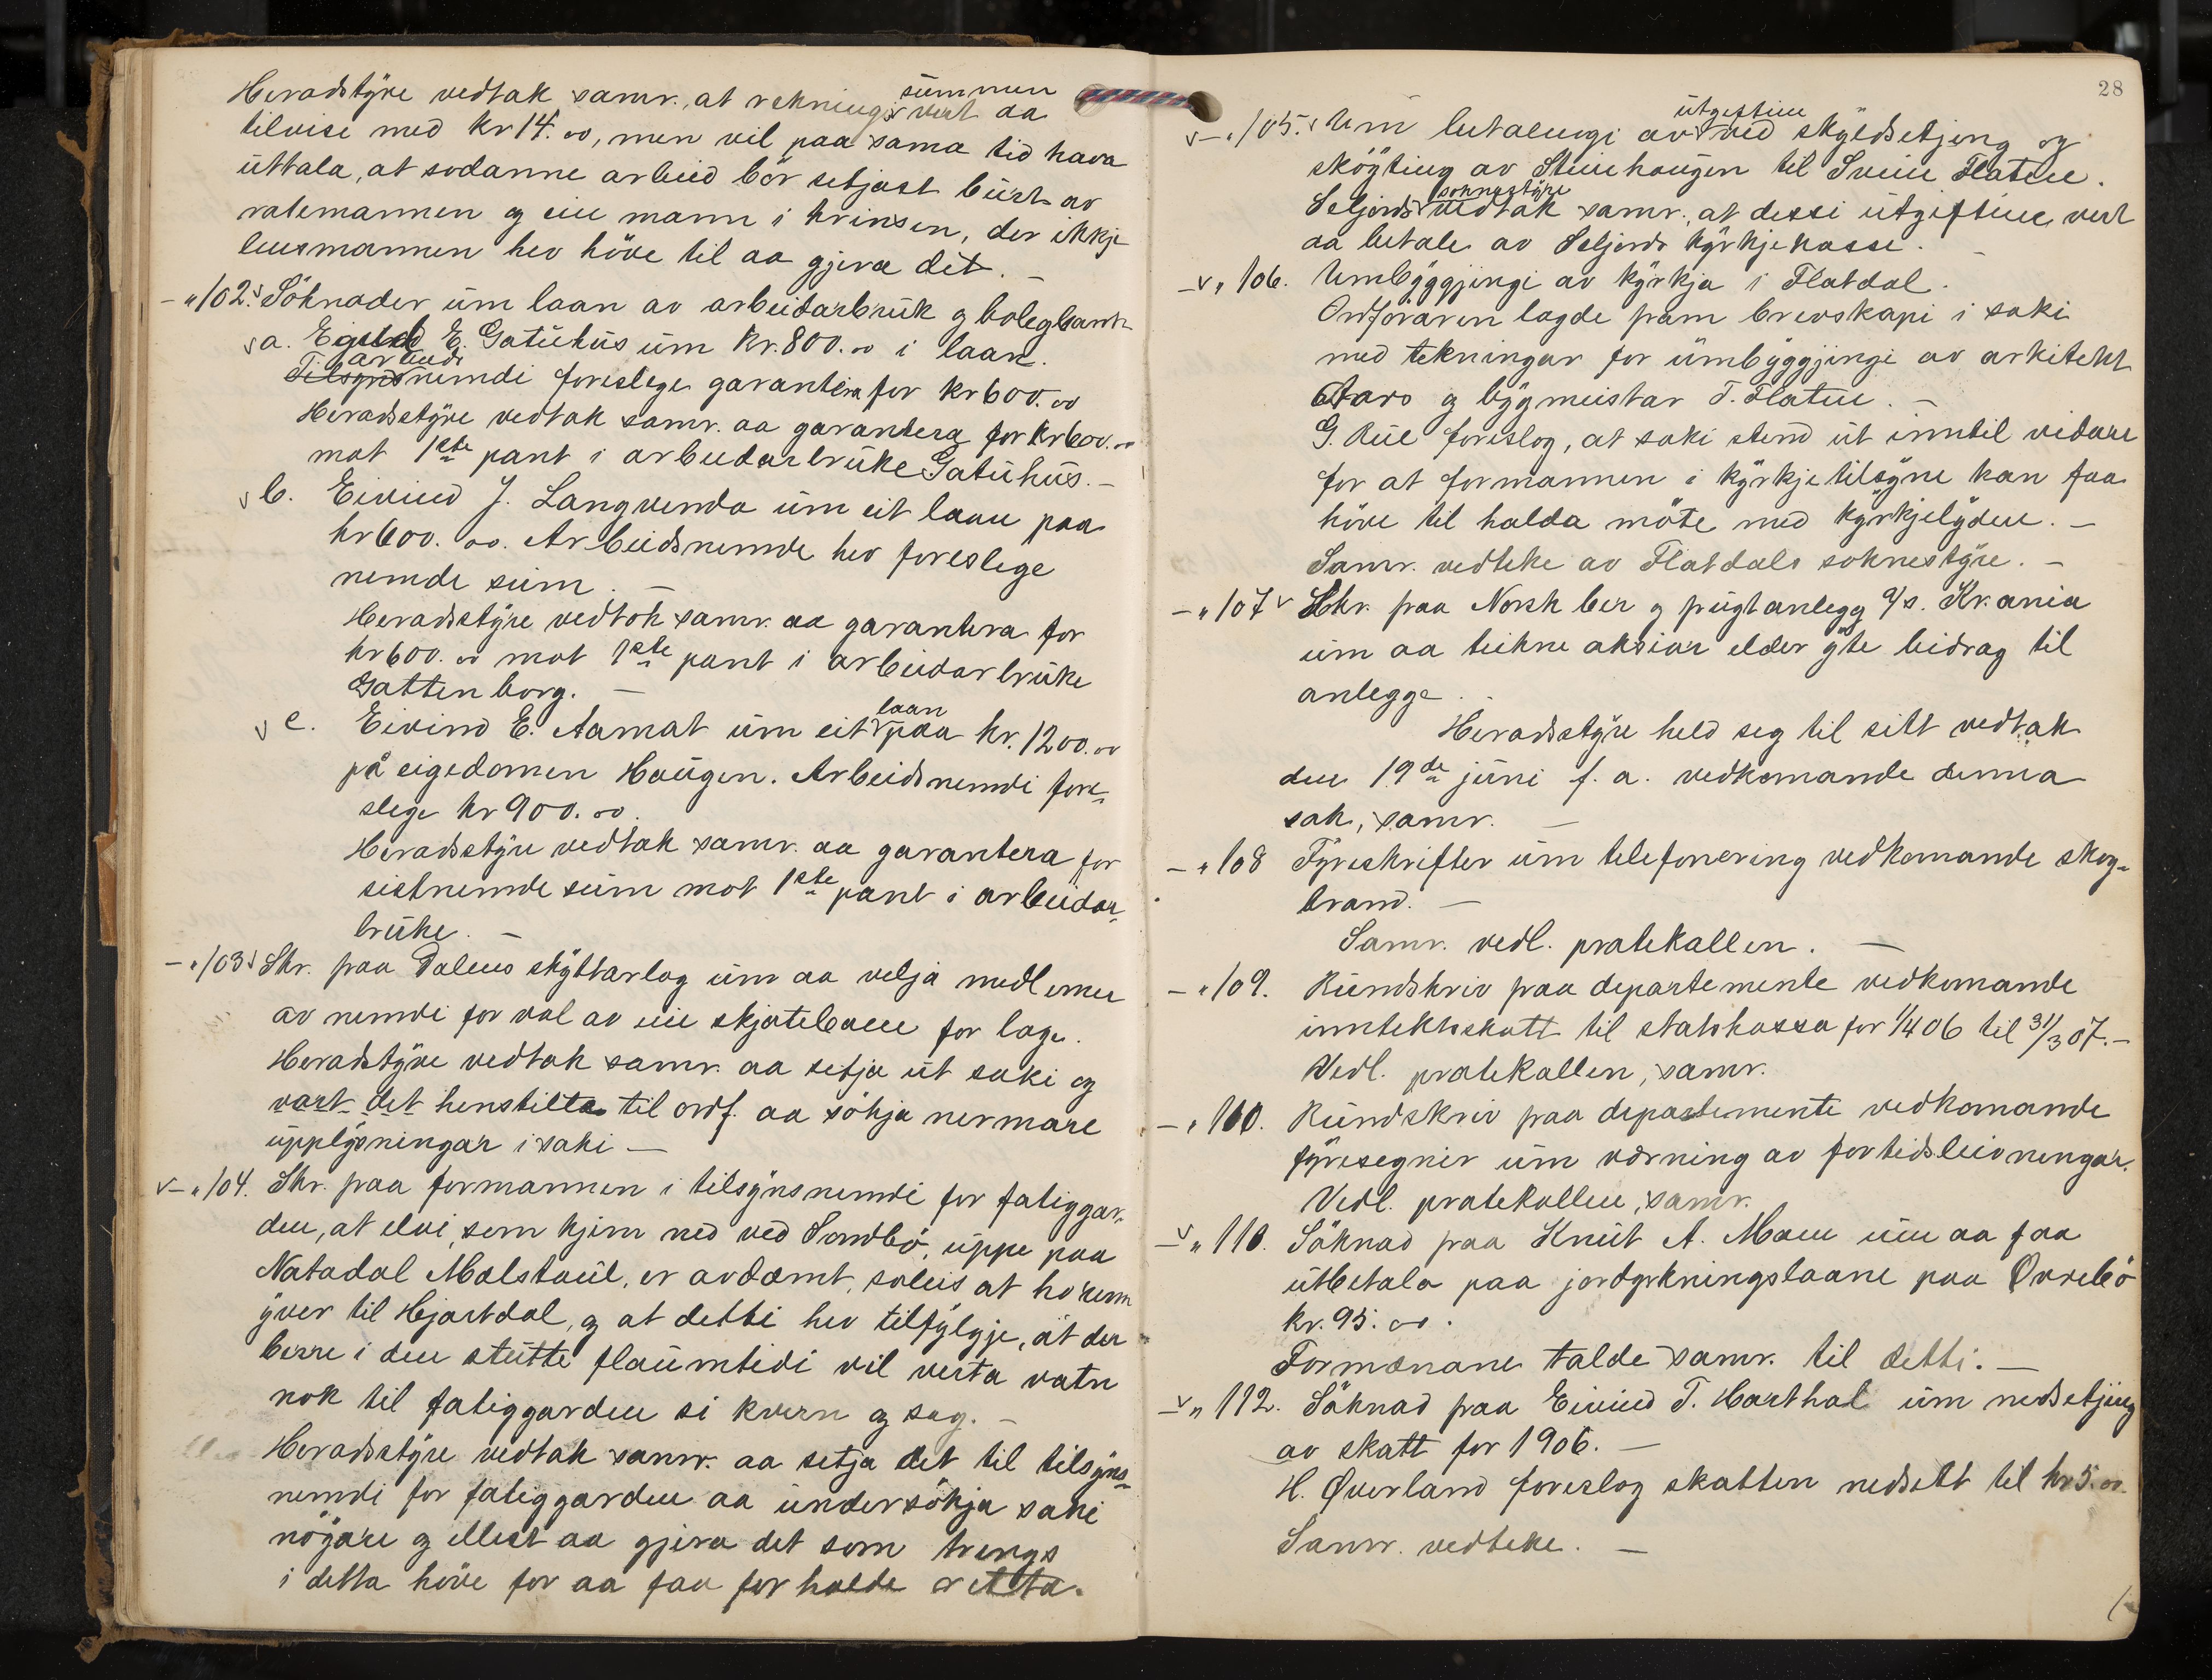 Heradstyre vedtak samr., at rekningi summen vert aa
tilvise med kr 14.00, men vil paa sama tid hava
uttala, at sodanne arbeid bör setjast burt av
rodemannen og ein mann i krinsen, der ikkje
lensmannen hev höve til aa gjera det. –
– " 102. Söknader um laan av arbeidarbruk g bolegbank
a. Egild E. Gatuhus um kr. 800.00 i laan.
Tilsyns arbeids nemdi foreslege garantera for kr 600.00
Heradsstyre vedtak samr. aa garantera for kr 600.00
mot 1ste pant i arbeidarbruke Gatuhus. –
b. Eivind J. Langvenda um eit laan paa
kr 600.00. Arbeidsnemde hev foreslege
nemde sum. –
Heradsstyre vedtok samr. aa garantera for
kr 600.00 mot 1ste pant i arbeidarbruke
Gattenborg. –
c. Eivind E. Aamat um eit laan paa kr. 1200.00
på eigedomen Haugen. Arbeidsnemdi fore-
slege kr 900.00.
Heradsstyre vedtak samr. aa garantera for
sistnemde sum mot 1ste pant i arbeidar-
bruke. –
– " 103 Skr. paa Dalens skyttarlag um aa velja medlemer
av nemdi for val av ein skjotebane for lage.
Heradstyre vedtak samr. aa setja ut saki og
vart det henstilta til ordf. aa sökja nermare
upplysningar i saki –
– " 104. Skr. paa formannen i tilsynsnemdi for fatiggar-
den, at elvi, som kjem ned ved Sandbö, uppe paa
Natadal Mælstaul, er avdæmt, soleis at ho renn
yver til Hjartdal, g at detti hev tilfylgje, at der
berre i den stutte flaumtidi vil verta vatn
nok til fatiggarden si kvern g sag. –
Heradsstyre vedtak samr. aa setja det til tilsyns-
nemdi for fatiggarden aa undersökja saki
nögare g ellest aa gjera det som trengs
i detta höve for aa faa forholde retta.
28
– " 105. Um betalingi av utgiftine ved skyldsetjing og
sköyting av Steinhaugen til Svein Flatin.
Seljords soknestyre vedtak samr., at dessi utgiftine vert
aa betale av Seljords kyrkjekasse. –
– " 106. Umbyggjingi av kyrkja i Flatdal.
Ordföraren lagde fram brevskapi i saki
med tekningar for umbyggjingi av arkitekt
Aars g byggmeistar T. Flatin. –
G. Rue foreslog, at saki stend ut inntil vidare
for at formannen i kyrkjetilsyne kan faa
höve til halda möte med kyrkjelyden. –
Samr. vedteke av Flatdals soknestyre. –
– " 107 Skr. paa Norsk ber g frugtanlegg a/s. Kr.ania
um aa teikne aksiar elder yte bidrag til
anlegge.
Heradsstyre held seg til sitt vedtak
den 19de juni f. a. vedkomande denna
sak, samr. –
– " 108 Fyreskrifter um telefonering vedkomande skog-
brand. –
Samr. vedl. protekallen. –
– " 109. Rundskriv paa departemente vedkomande
inntektsskatt til statskassa for 1/4 06 til 31/3 07. –
Vedl. protekallen, samr.
– " 110. Rundskriv paa departemente vedkomande
fyresegner um værning av fortidsleivningar.
Vedl. protekollen, samr.
– " 111. Söknad paa Knut A. Moen um aa faa
utbetala paa jordyrkningslaane paa Øvrebö
kr. 95.00.
Formænane talde samr. til detti. –
– " 112. Söknad paa Eivind T. Harthal um nedsetjing
av skatt for 1906. –
H. Øverland foreslog skatten nedsett til kr 5.00.
Samr. vedteke. –